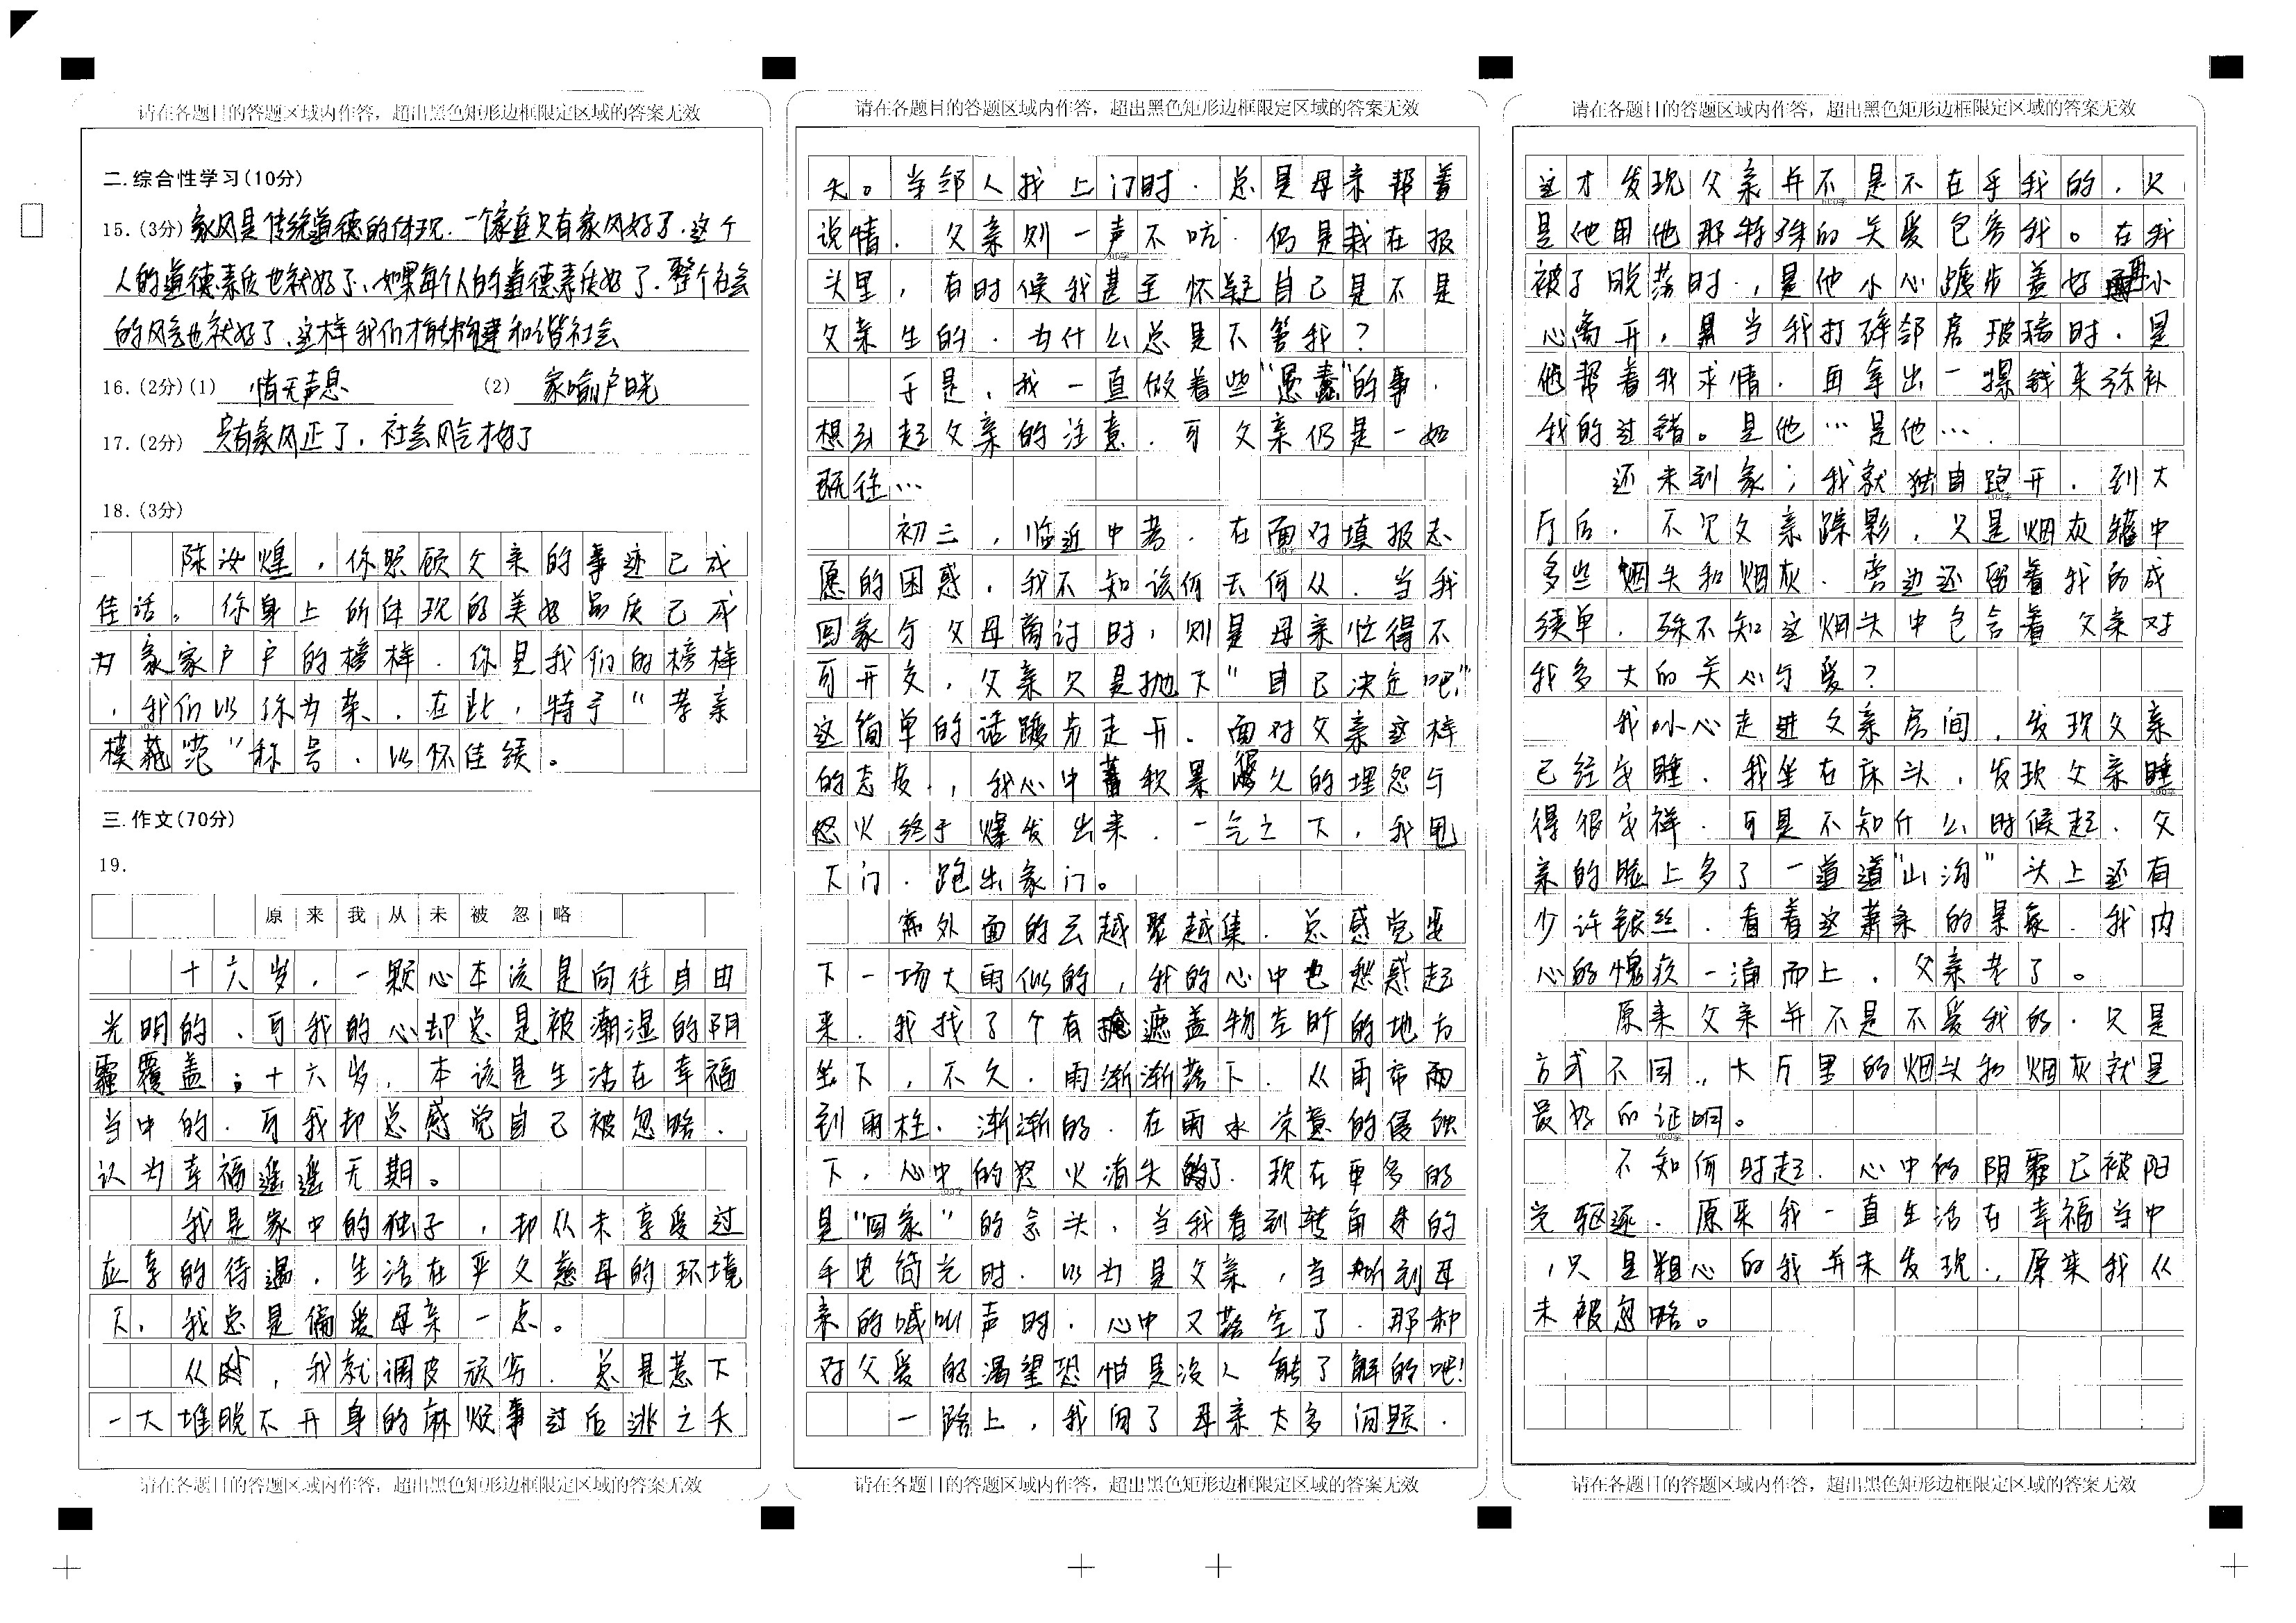 请在各题目的答题区域内作答，超出黑色矩形边框限定区域的答案无效
二.综合性学习(10分)
15.(3分)家风是传统道德的体现.一个家庭只有家风好了.这个
人的道德素质也就好了、如果每个人的道德素质好了.整个社会
的风气也就好了、这样我们才能构建和谐社会
16.(2分)(1) 悄无声息 (2) 家喻户晓
17.(2分) 只有家风正了，社会风气才好了
18.(3分)
陈汝煌，你照顾父亲的事迹已成
佳话。你身上所体现的美好品质已成
为家家户户的榜样.你是我们的榜样
，我们以你为荣、在此，特予“孝亲
模范”称号.以怀佳绩。
三.作文(70分)
19.
原来我从未被忽略
十六岁，一颗心本该是向往自由
光明的、可我的心却总是被潮湿的阴
霾覆盖；十六岁，本该是生活在幸福
当中的.可我却总感觉自己被忽略.
认为幸福遥遥无期。
我是家中的独子，却从未享受过
应享的待遇.生活在严父慈母的环境
下，我总是偏爱母亲一点。
从小，我就调皮顽劣.总是惹下
一大堆脱不开身的麻烦事过后逃之夭
请在各题目的答题区域内作答，超出黑色矩形边框限定区域的答案无效
请在各题目的答题区域内作答，超出黑色矩形边框限定区域的答案无效
夭。当邻人找上门时.总是母亲帮着
说情.父亲则一声不吭.仍是栽在报
头里，有时候我甚至怀疑自己是不是
父亲生的.为什么总是不管我？
于是，我一直做着些“愚蠢”的事.
想引起父亲的注意.可父亲仍是一如
既往…
初三，临近中考.在面对填报志
愿的困惑.我不知该何去何从.当我
回家与父母商讨时，则是母亲忙得不
可开交，父亲只是抛下“自已决定吧”
这简单的话踱步走开.面对父亲这样
的态度，我心中蓄积累很久的埋怨与
怒火终于爆发出来.一气之下，我甩
下门.跑出家门。
外面的云越聚越集.总感觉要
下一场大雨似的，我的心中也愁惑起
来.我找了个有遮盖物生旷的地方
坐下，不久.雨渐渐落下.从雨帘雨
到雨柱.渐渐的.在雨水凉意的侵蚀
下，心中的怒火消失了.现在更多的
是“回家”的念头.当我看到转角处的
手电筒光时.以为是父亲，当听到母
亲的喊叫声时.心中又落空了.那种
对父爱的渴望恐怕是没人能了解的吧！
一路上，我问了母亲太多问题.
请在各题目的答题区域内作答，超出黑色矩形边框限定区域的答案无效
请在各题目的答题区域内作答，超出黑色矩形边框限定区域的答案无效
这才发现父亲并不是不在乎我的，只
是他用他那特殊的关爱包容我。在我
被子脱落时，是他小心踱步盖好再小
心离开，当我打碎邻居玻璃时.是
他帮着我求情.再拿出一摞钱来弥补
我的过错。是他…是他….
还未到家；我就独自跑开.到大
厅后.不见父亲踪影，只是烟灰罐中
多些烟头和烟灰.旁边还留着我的成
绩单.殊不知这烟头中包含着父亲对
我多大的关心与爱？
我小心走进父亲房间，发现父亲
已经安睡.我坐在床头，发现父亲睡
得很安祥.可是不知什么时候起.父
亲的脸上多了一道道“山沟”头上还有
少许银丝.看着这萧条的景象.我内
心的愧疚一涌而上.父亲老了。
原来父亲并不是不爱我的.只是
方式不同.，大厅里的烟头和烟灰就是
最好的证明。
不知何时起.心中的阴霾已被阳
光驱逐.原来我一直生活在幸福当中
，只是粗心的我并未发现.，原来我从
未被忽略。
请在各题目的答题区域内作答，超出黑色矩形边框限定区域的答案无效